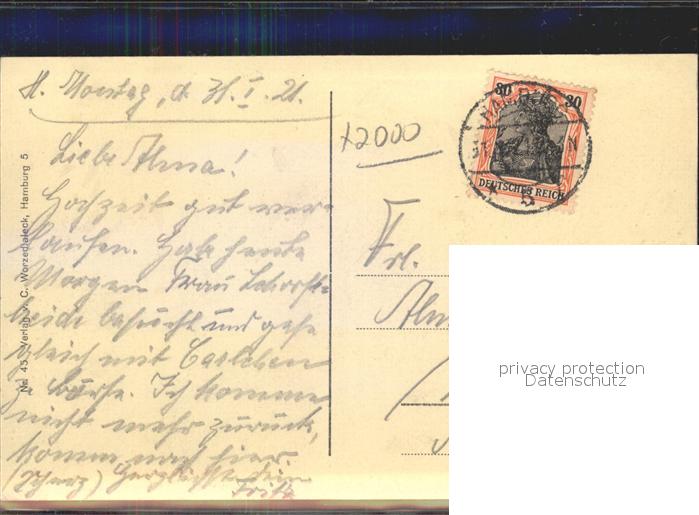 H. Montag, d. 31. I. 21.
Liebe Alma!
Hochzeit gut ver-
laufen. Habe heute
Morgen Frau Schorft-
heide besucht und gehe
gleich mit Carlchen
z. Börse. Ich komme
nicht mehr zurück,
komm nach hier.
(Scherz) Herzlichst dein
Fritz
Nr. 45. Verlag v. C. Worzedialeck, Hamburg 5
x2000
30 30
DEUTSCHES REICH
Frl.
Alm
privacy protection
Datenschutz